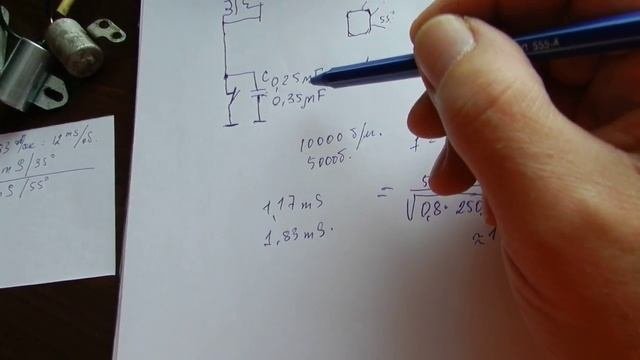 55°
C 0,25mF
0,35mF
10000 б/м.
5000б.
f =
1,17mS
1,83mS.
=
√0,8 · 250
≈ 1
12 mS/об.
mS/35°
S/55°
555-A